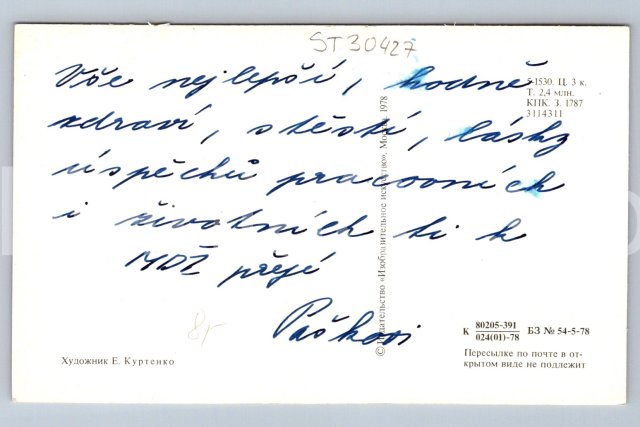 ST30427
Vše nejlepší, hodně
zdraví, štěstí, lásky
úspěchů pracovních
i životních ti k
MDŽ přejí
Paškovi
8,-
5-1530. Ц. 3 к.
Т. 2,4 млн.
КПК. З. 1787
3114311
© Издательство «Изобразительное искусство». Москва. 1978
К 80205-391
024(01)-78 БЗ № 54-5-78
Пересылке по почте в от-
крытом виде не подлежит
Художник Е. Куртенко